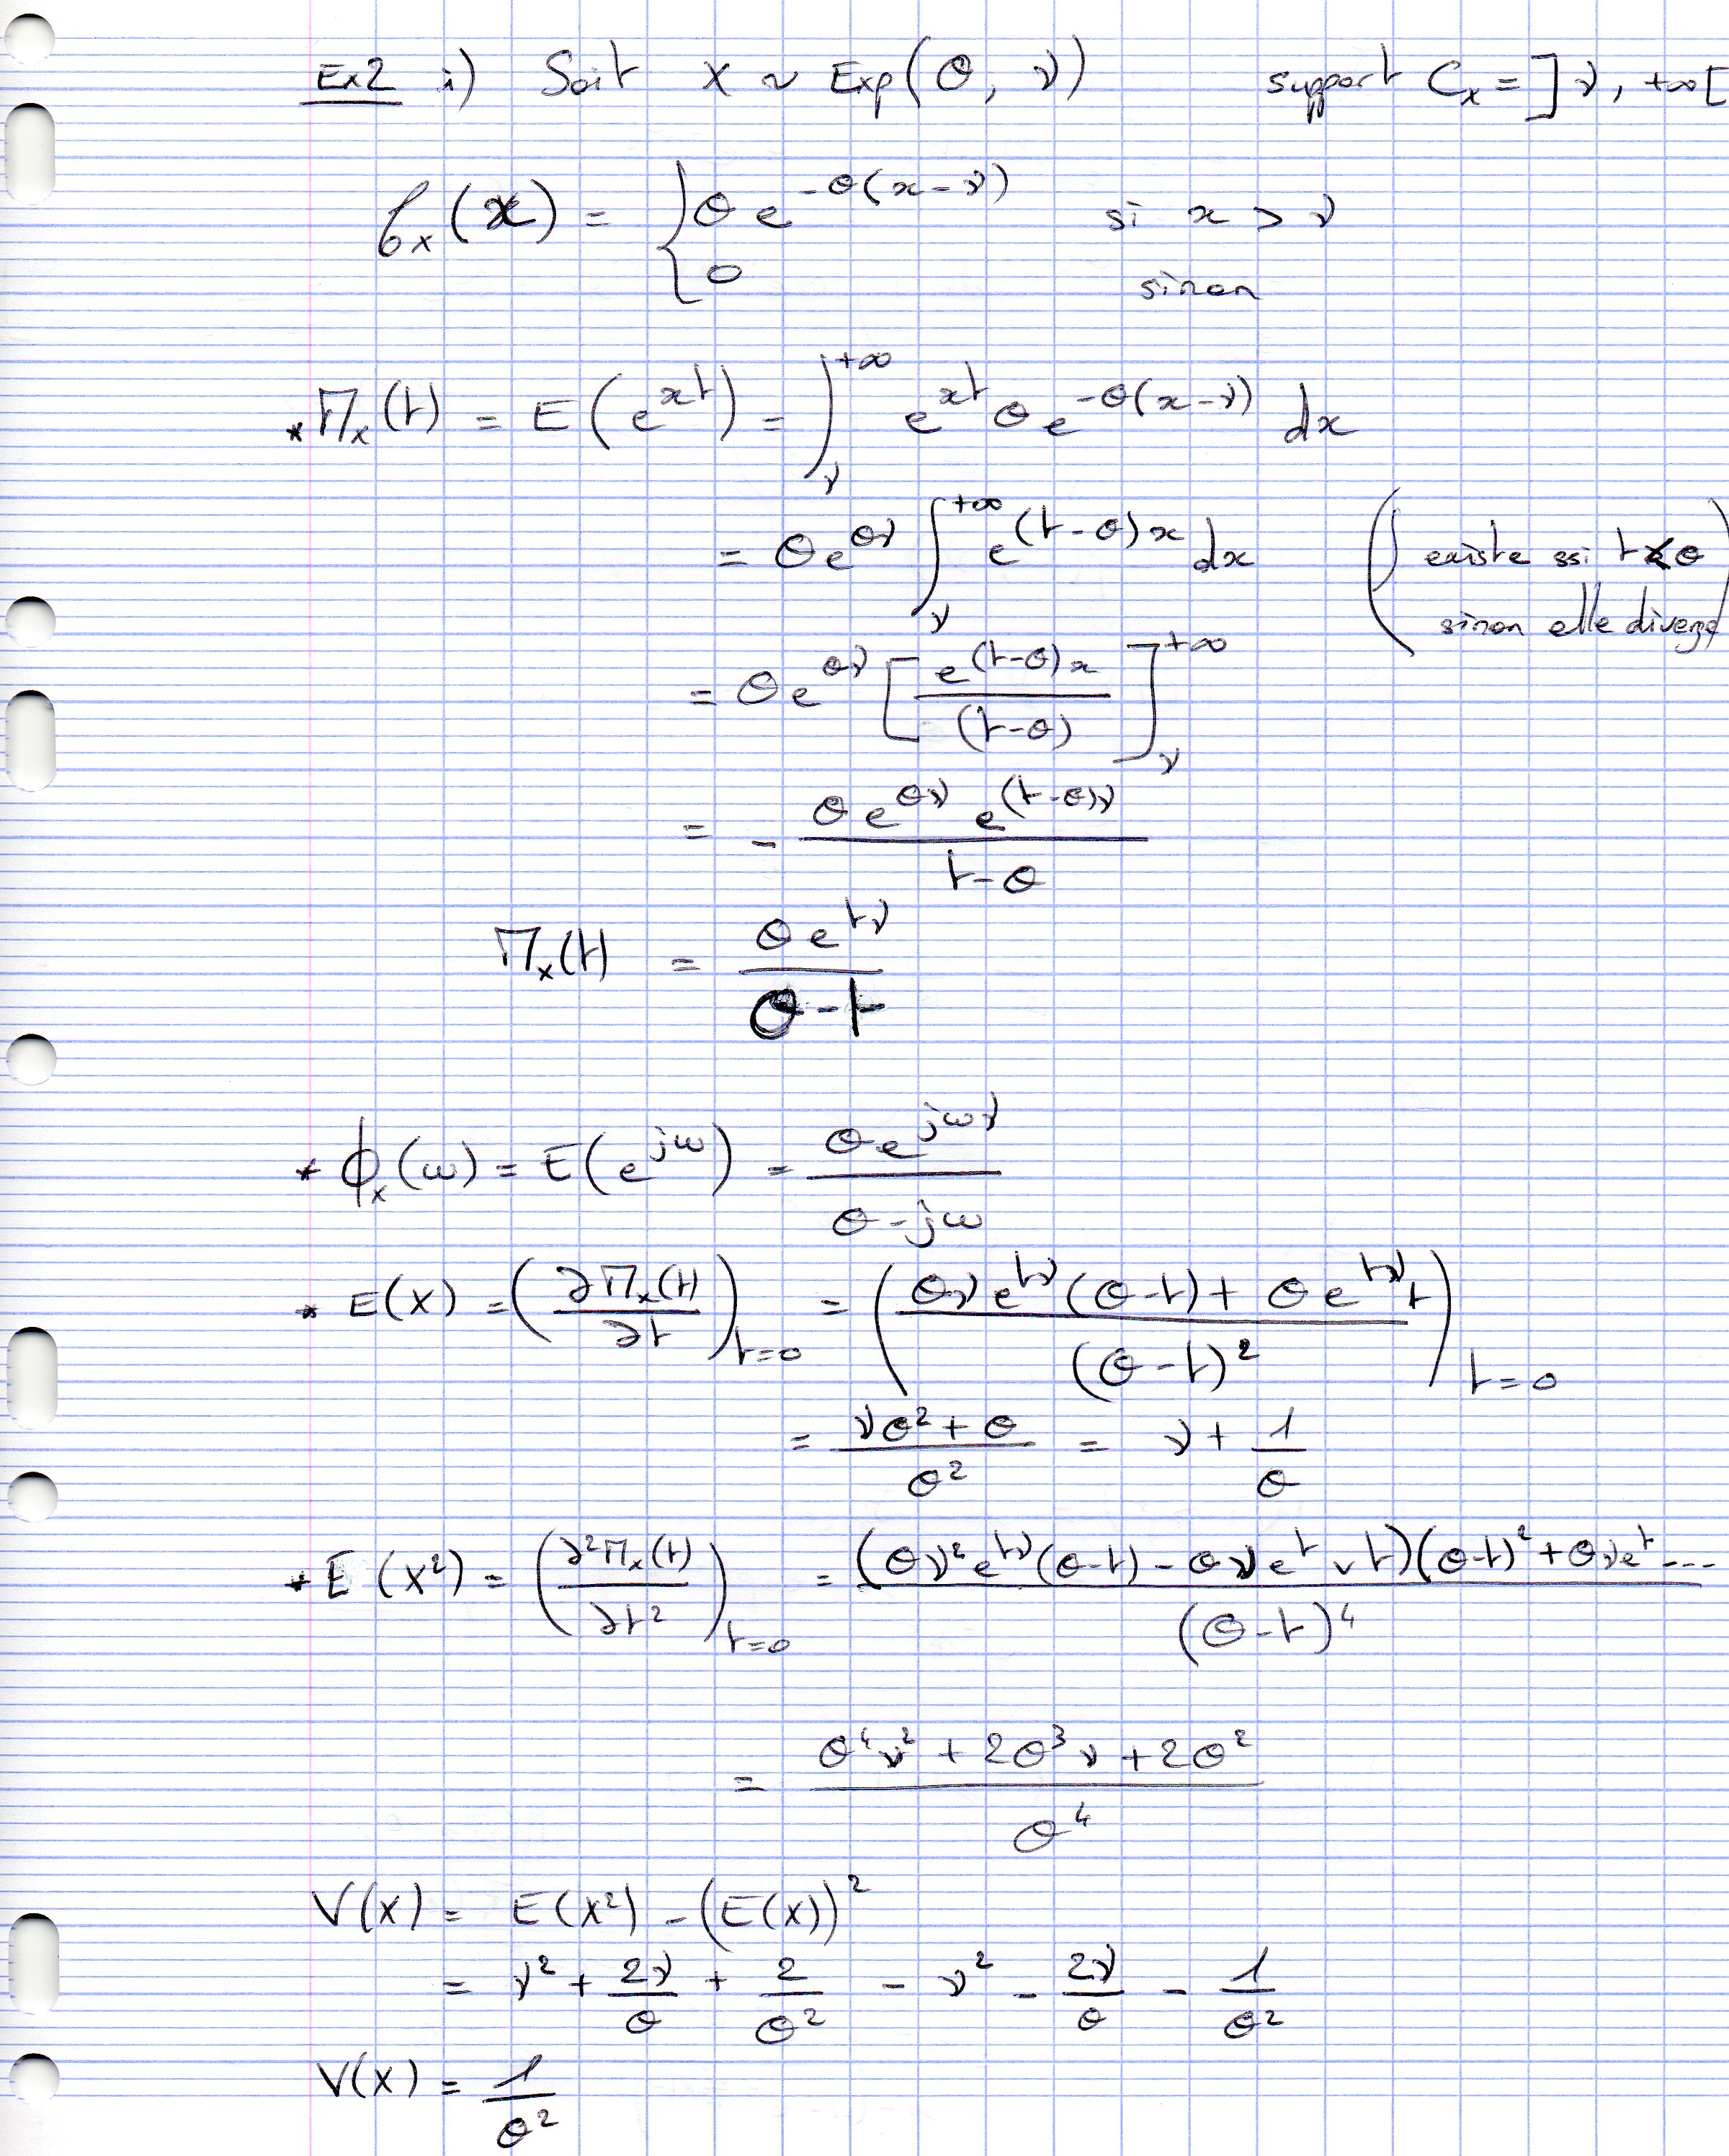 Ex2 i) Soit X ~ Exp(θ, ν) support C_x = ]ν, +∞[
f_x(x) = { θ e^{-θ(x-ν)} si x > ν
0 sinon
* M_x(t) = E(e^{xt}) = ∫_ν^{+∞} e^{xt} θ e^{-θ(x-ν)} dx
= θ e^{θν} ∫_ν^{+∞} e^{(t-θ)x} dx (existe ssi t<θ
sinon elle diverge)
= θ e^{θν} [ e^{(t-θ)x} / (t-θ) ]_ν^{+∞}
= - θ e^{θν} e^{(t-θ)ν} / t-θ
M_x(t) = θ e^{tν} / θ-t
* ϕ_x(ω) = E(e^{jω}) = θ e^{jων} / θ-jω
* E(X) = (∂M_x(t) / ∂t)_{t=0} = ( θν e^{tν} (θ-t) + θ e^{tν} t / (θ-t)^2 )_{t=0}
= νθ^2 + θ / θ^2 = ν + 1/θ
* E(X^2) = (∂^2 M_x(t) / ∂t^2)_{t=0} = (θν^2 e^{tν} (θ-t) - θν e^t ν t)(θ-t)^2 + θν e^t ... / (θ-t)^4
= θ^4 ν^2 + 2θ^3 ν + 2θ^2 / θ^4
V(X) = E(X^2) - (E(X))^2
= ν^2 + 2ν/θ + 2/θ^2 - ν^2 - 2ν/θ - 1/θ^2
V(X) = 1/θ^2